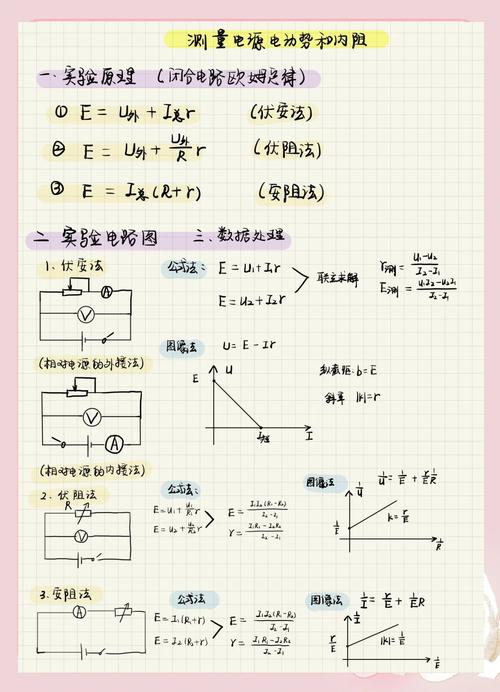 测量电源电动势和内阻
一. 实验原理 (闭合电路欧姆定律)
① E = U外 + I总r (伏安法)
② E = U外 + U外/R r (伏阻法)
③ E = I总(R+r) (安阻法)
二 实验电路图 三、数据处理
1. 伏安法
A
V
(相对电源的外接法)
V
A
(相对电源的内接法)
公式法:
E = U1 + I1r
E = U2 + I2r
联立求解
r测 = U1-U2/I2-I1
E测 = U1I2-U2I1/I2-I1
图像法
U = E - Ir
E
U
I短
I
纵截距: b = E
斜率 |k| = r
2. 伏阻法
R
V
公式法:
E = U1 + U1/R1 r
E = U2 + U2/R2 r
图像法
1/U = 1/E + r/E 1/R
1/U
1/E
k = r/E
1/R
3. 安阻法
A
公式法
E = I1(R1+r)
E = I2(R2+r)
E = I1I2(R1-R2)/I2-I1
r = I1R1-I2R2/I2-I1
图像法
1/I = r/E + 1/E R
1/I
r/E
|k| = 1/E